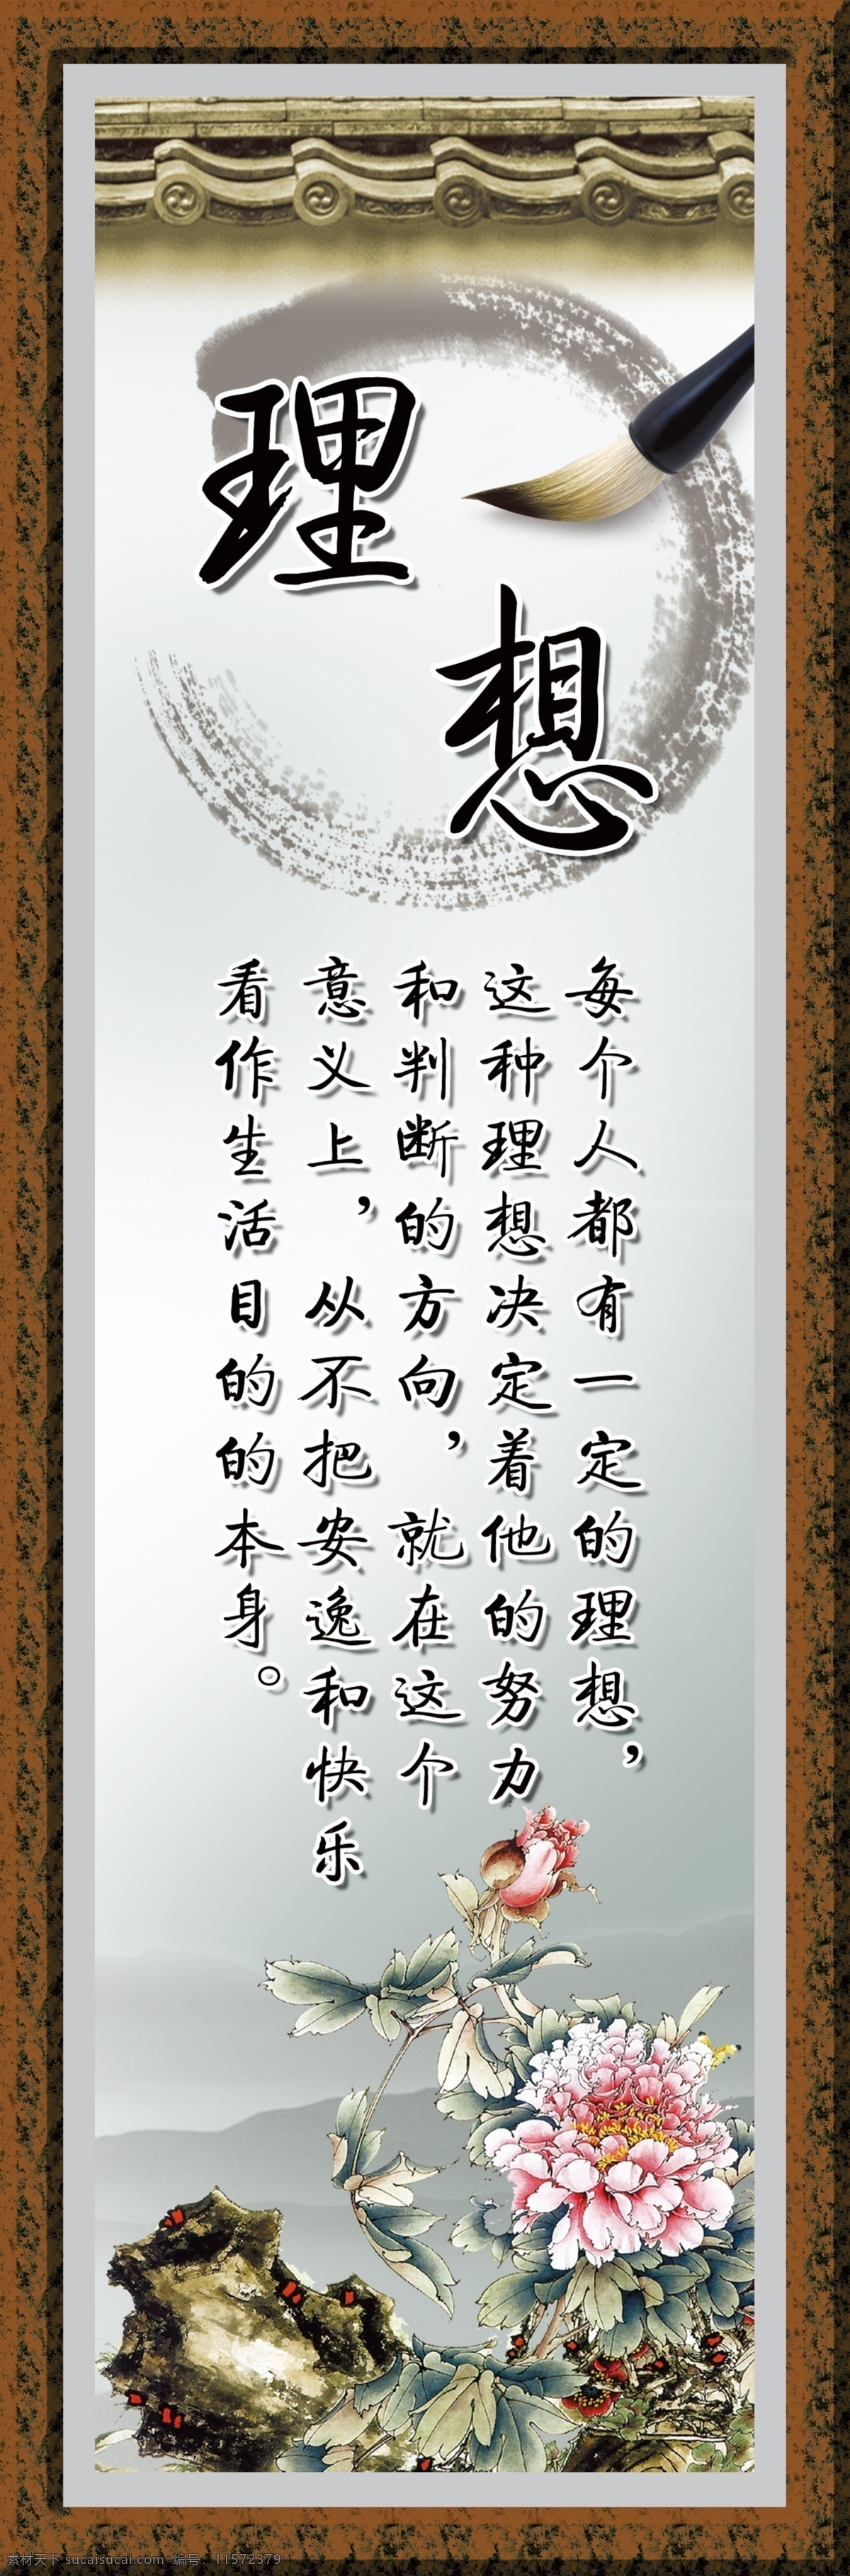 理
想
每个人都有一定的理想，
这种理想决定着他的努力
和判断的方向，就在这个
意义上，从不把安逸和快乐
看作生活目的的本身。
素材天下 sucaisucai.com 编号：11572379